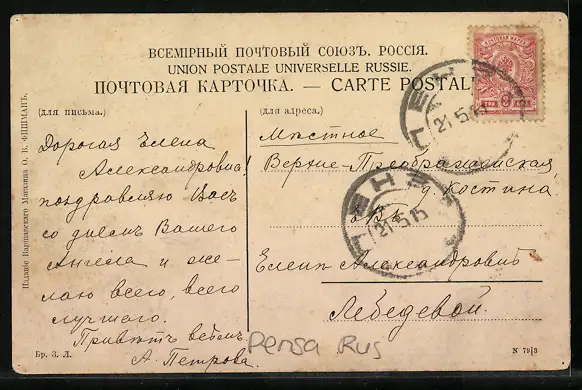 ВСЕМІРНЫЙ ПОЧТОВЫЙ СОЮЗЪ. РОССІЯ.
UNION POSTALE UNIVERSELLE RUSSIE.
ПОЧТОВАЯ КАРТОЧКА. — CARTE POSTALE
(для письма.)
Дорогая Елена
Александровна!
поздравляю Васъ
со днемъ Вашего
Ангела и же-
лаю всего, всего
лучшаго.
Приветъ всемъ
А. Петрова.
(для адреса.)
Мѣстное
Верхне-Преображенская,
д Костина
Елене Александровнѣ
Лебедевой.
ПЕНЗА
21.5.15
ПЕНЗА
21.5.15
Pensa Rus
Изданіе Варшавскаго Магазина О. В. ФИШМАНЪ.
Бр. З. Л.
N 79|3